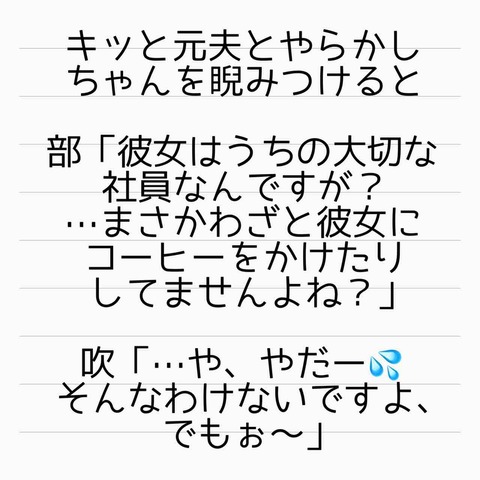 キッと元夫とやらかし
ちゃんを睨みつけると
部「彼女はうちの大切な
社員なんですが？
…まさかわざと彼女に
コーヒーをかけたり
してませんよね？」
吹「…や、やだー💦
そんなわけないですよ、
でもぉ〜」